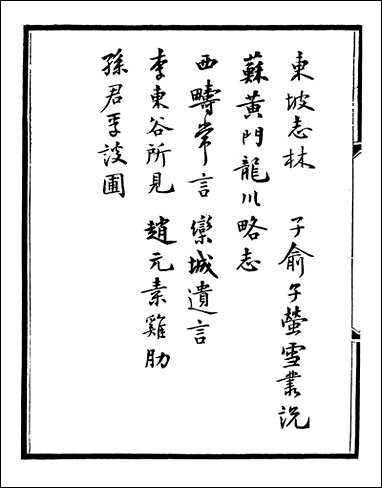 東坡志林　子俞子螢雪叢説
蘇黄門龍川略志
西疇常言　欒城遺言
李東谷所見　趙元素雞肋
孫君孚談圃